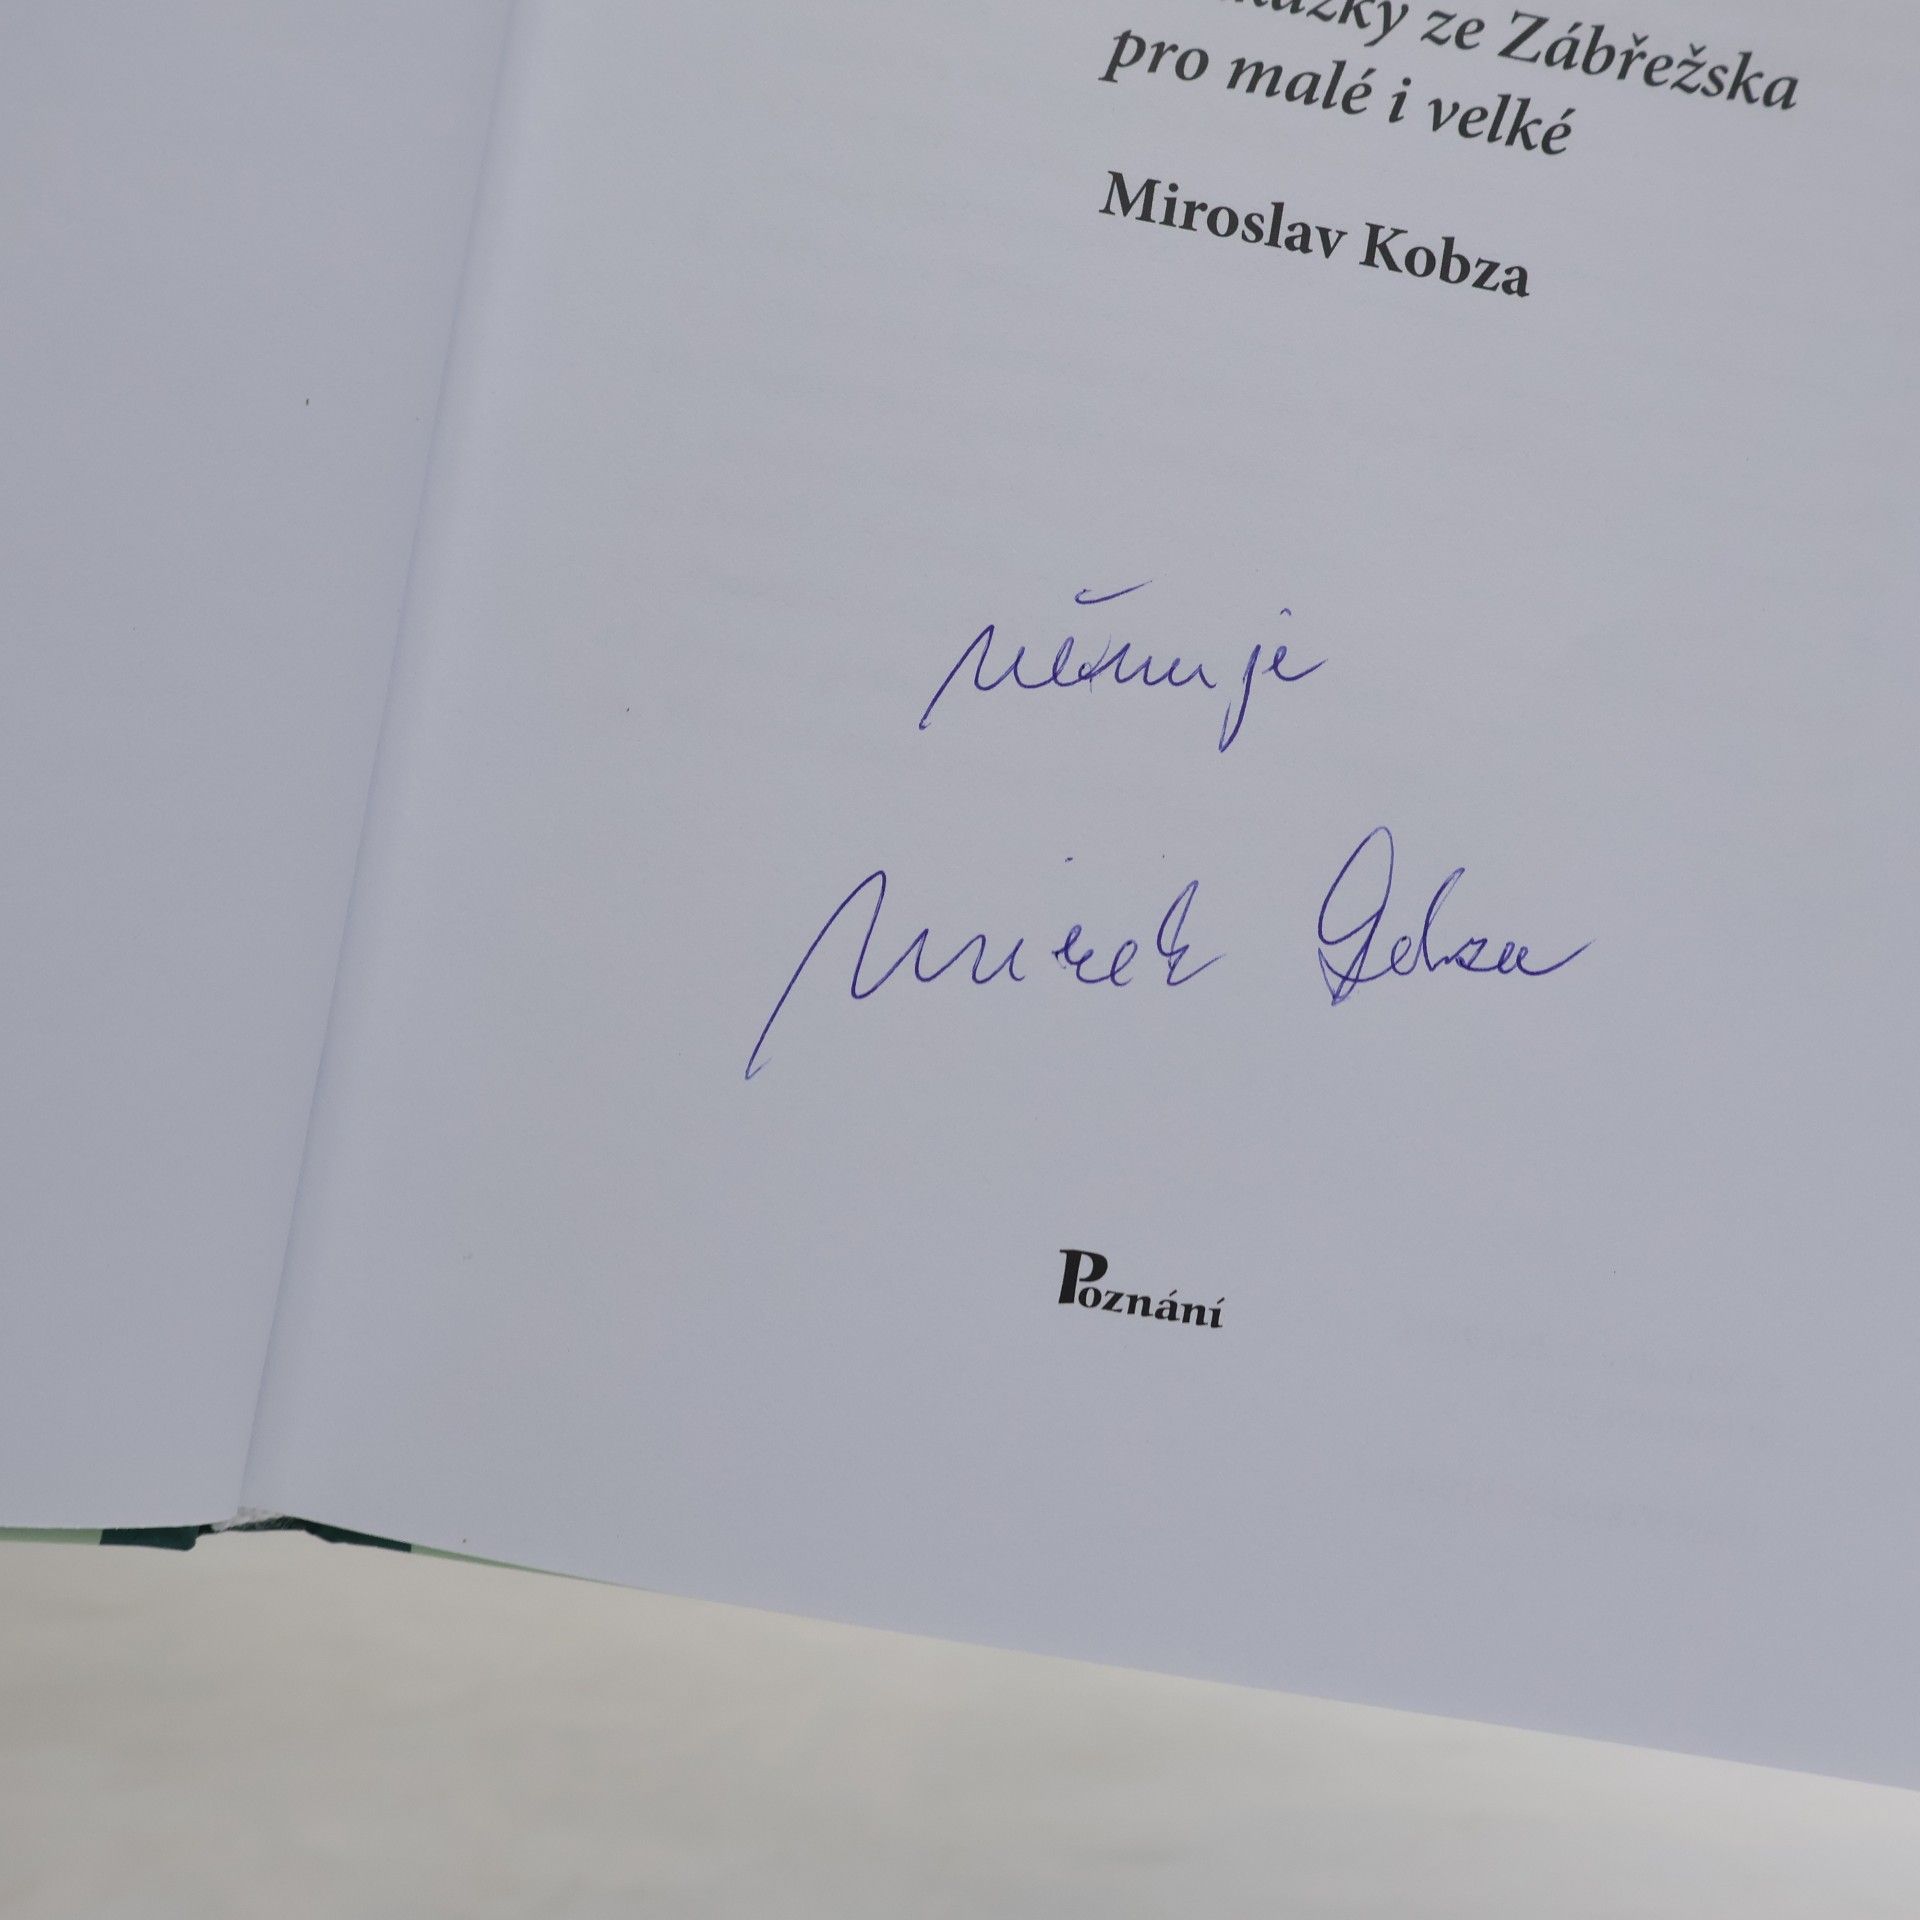 ze Zábřežska
pro malé i velké
Miroslav Kobza
věnuje
Mirek Kobza
Poznání